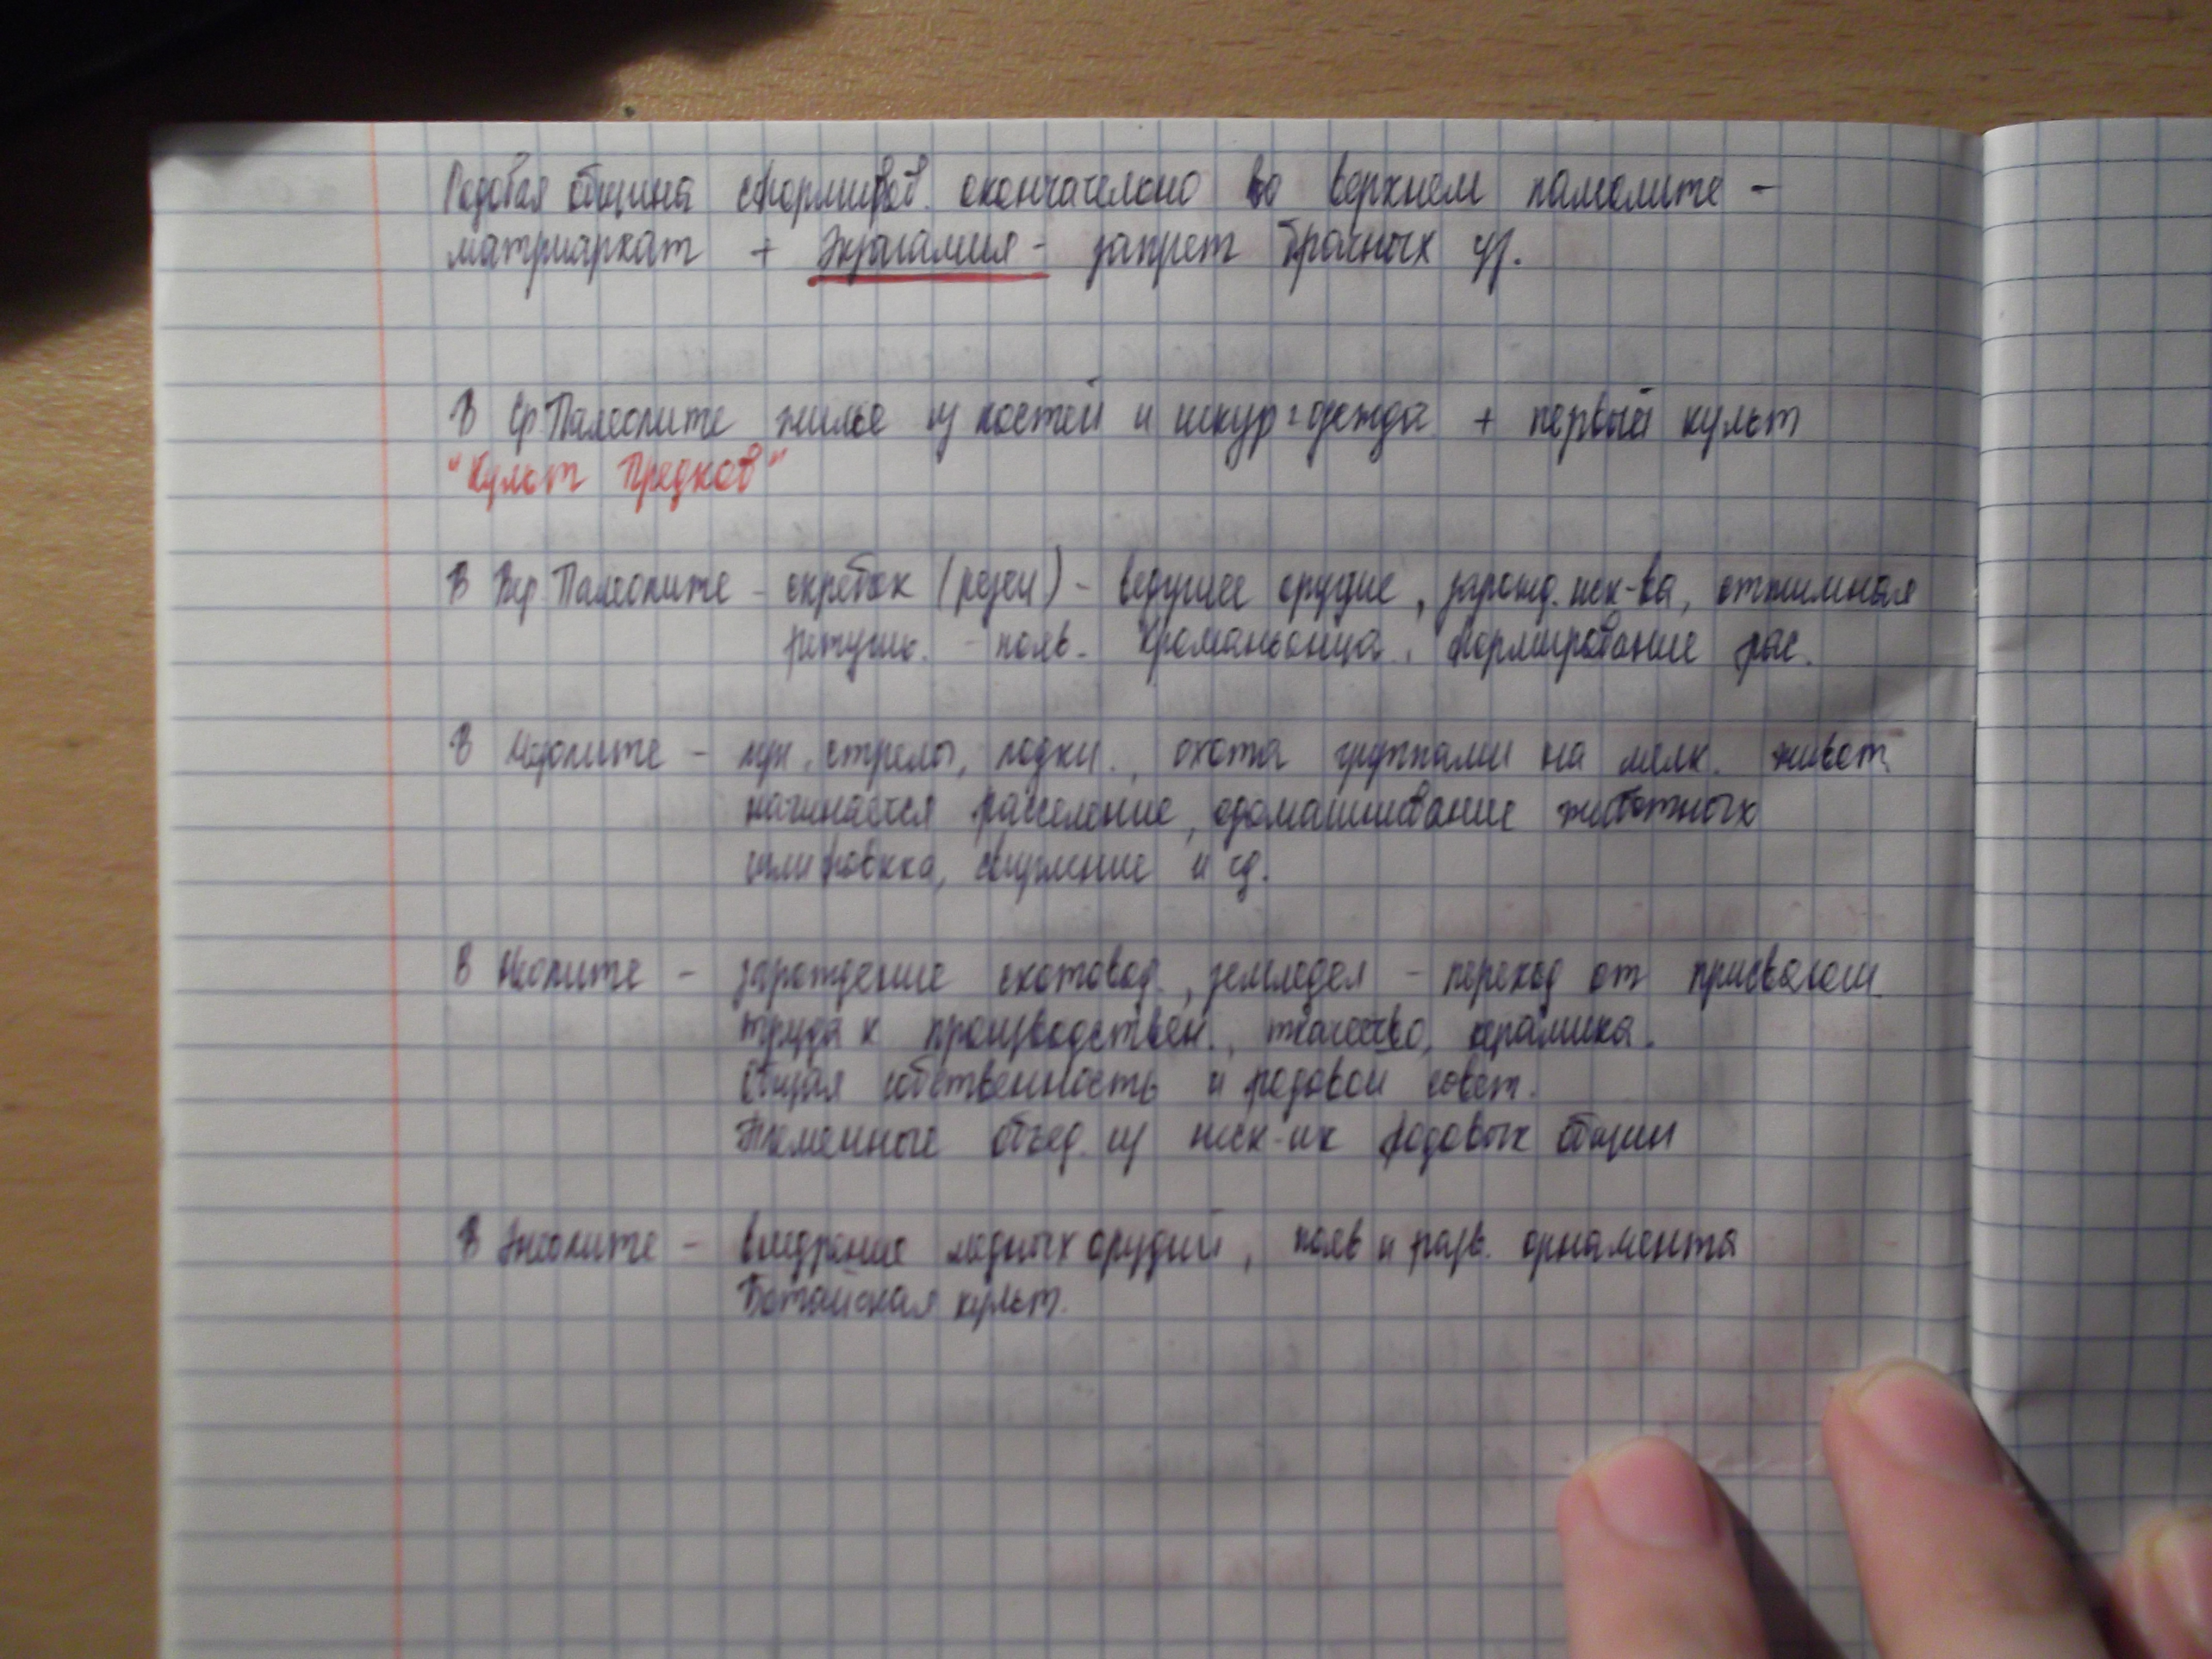 Родовая община сформиров. окончательно во верхнем палеолите -
матриархат + Экзогамия - запрет брачных
В Ср Палеолите жилье из костей и шкур одежда + первый культ
"Культ Предков"
В Вер. Палеолите - скребок (резец) - ведущее орудие, зарожд. иск-ва, отжимная
ретушь. - появ. Кроманьонца. Формирование рас.
В Мезолите - лук, стрелы, лодки., охота группами на мелк. живот.
начинается расселение, одомашнивание животных
шлифовка, сверление и т.д.
В Неолите - зарождение скотовод., земледел - переход от присваеющ.
труда к производствен., ткачество, керамика.
Общая собственность и родовой совет.
Племенные объед. из неск-их родовых общин
В Энеолите - внедрение медных орудий, появ и разв. орнамента
Ботайская культ.